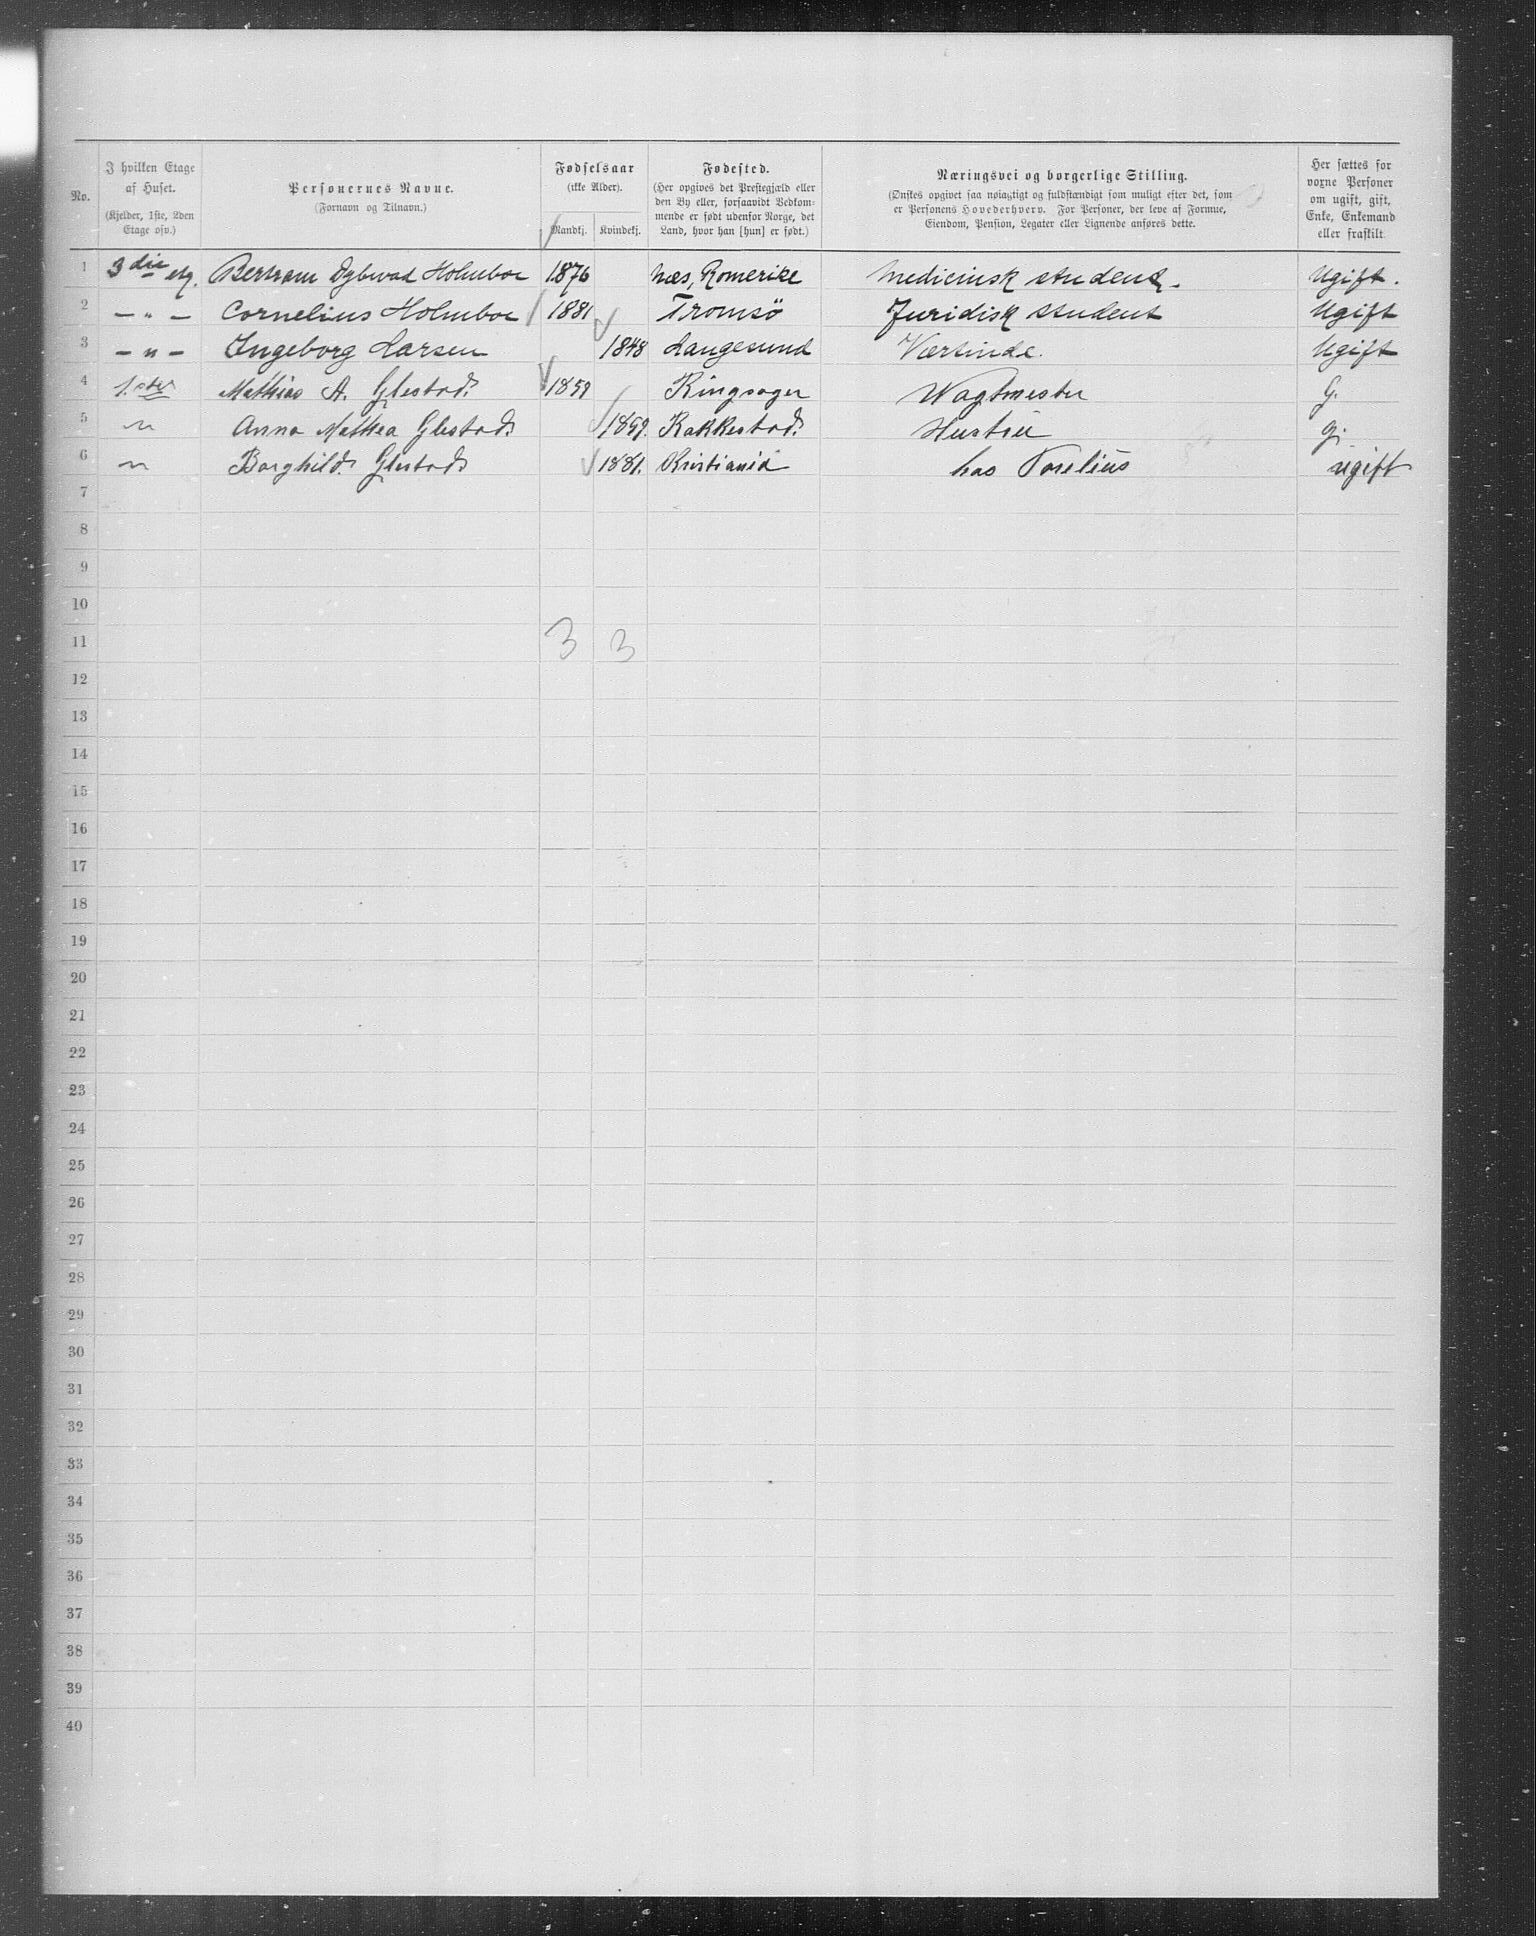 No. | I hvilken Etage af Huset. (Kjelder, 1ste, 2den Etage osv.) | Personernes Navne. (Fornavn og Tilnavn.) | Fødselsaar (ikke Alder). Mandkj. | Kvindekj. | Fødested. (Her opgives det Prestegjæld eller den By eller, forsaavidt Vedkommende er født udenfor Norge, det Land, hvor han [hun] er født.) | Næringsvei og borgerlige Stilling. (Ønskes opgivet saa nøiagtigt og fuldstændigt som muligt efter det, som er Personens Hovederhverv. For Personer, der leve af Formue, Eiendom, Pension, Legater eller Lignende anføres dette. | Her sættes for voxne Personer om ugift, gift, Enke, Enkemand eller fraskilt.
1 | 3die etg. | Bertram Dybwad Holmboe | 1876 | | Næs, Romerike | Medicinsk student. | Ugift.
2 | – " – | Cornelius Holmboe | 1881 | | Tromsö | Juridisk student | Ugift
3 | – " – | Ingeborg Larsen | | 1848 | Langesund | Værtinde. | Ugift
4 | 1.ste | Mathias A. Glestad. | 1859 | | Ringsager | Wagtmester | G.
5 | " | Anna Mathea Glestad | | 1859. | Rakkestad. | Hustru | g.
6 | " | Borghild Glestad | | 1881. | Kristiania | hos | ugift
7
8
9
10
11 | | | 3 | 3
12
13
14
15
16
17
18
19
20
21
22
23
24
25
26
27
28
29
30
31
32
33
34
35
36
37
38
39
40